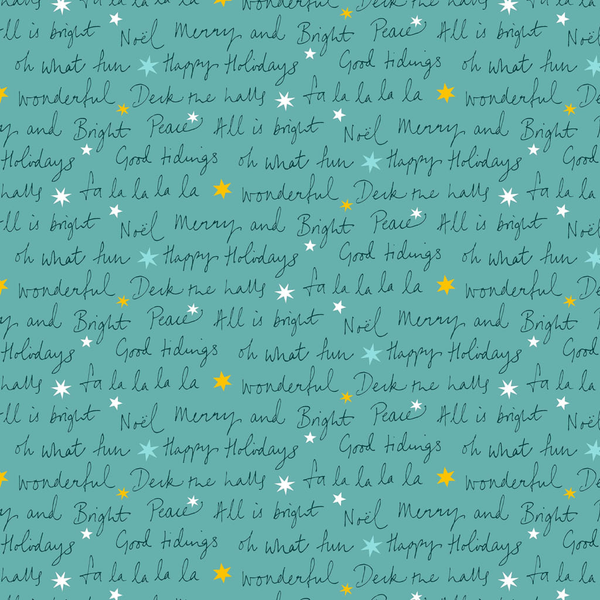 halls fa la la la la wonderful Deck the halls fa la
ll is bright Noël Merry and Bright Peace All is bright Noë
oh what fun Happy Holidays Good tidings oh what fun H
wonderful Deck the halls fa la la la la wonderful De
y and Bright Peace All is bright Noël Merry and Brigh
Holidays Good tidings oh what fun Happy Holidays Goo
halls fa la la la la wonderful Deck the halls fa la
ll is bright Noël Merry and Bright Peace All is bright Noë
oh what fun Happy Holidays Good tidings oh what fun H
wonderful Deck the halls fa la la la la wonderful De
y and Bright Peace All is bright Noël Merry and Brigh
Holidays Good tidings oh what fun Happy Holidays Goo
halls fa la la la la wonderful Deck the halls fa la
ll is bright Noël Merry and Bright Peace All is bright Noë
oh what fun Happy Holidays Good tidings oh what fun H
wonderful Deck the halls fa la la la la wonderful De
y and Bright Peace All is bright Noël Merry and Brigh
Holidays Good tidings oh what fun Happy Holidays Goo
halls fa la la la la wonderful Deck the halls fa la